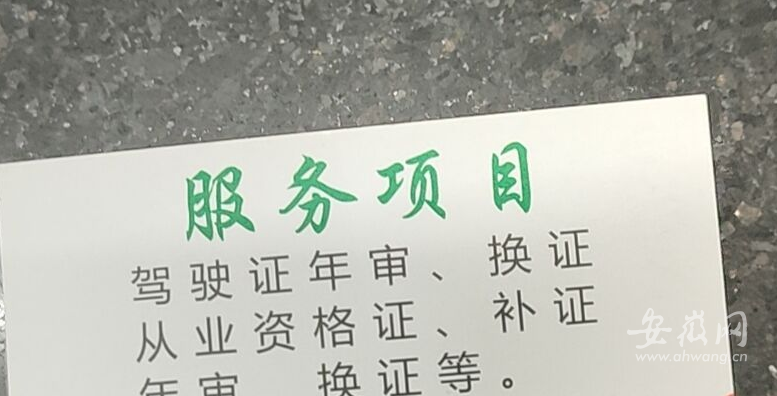 服务项目
驾驶证年审、换证
从业资格证、补证
年审、换证等。
安徽网
www.ahwang.cn